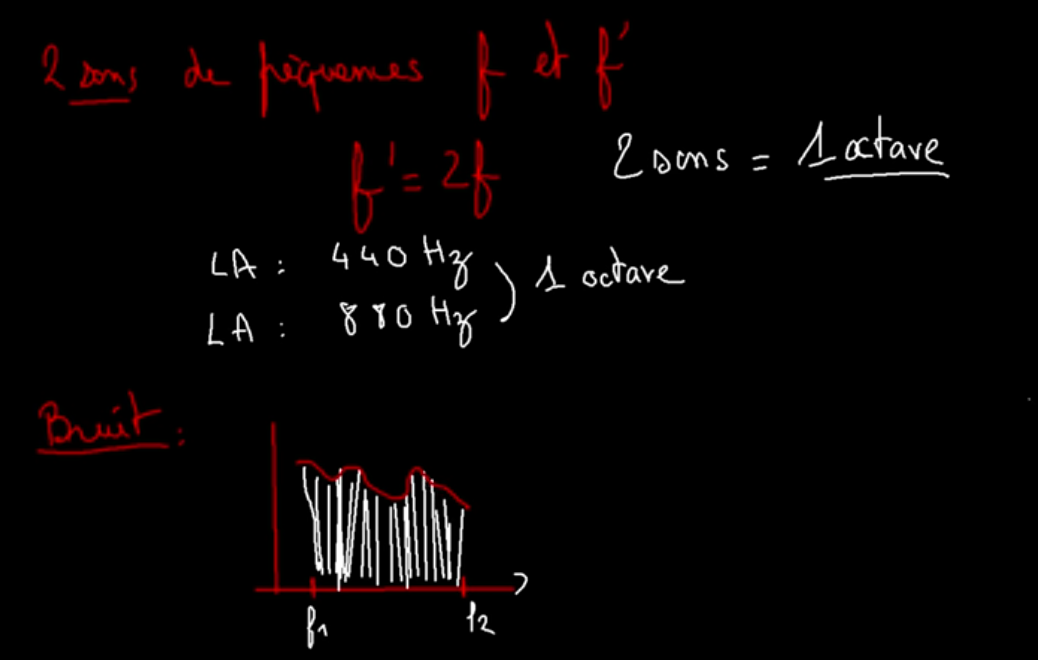 2 sons de fréquences f et f'
f' = 2f
2 sons = 1 octave
LA : 440 Hz
LA : 880 Hz
) 1 octave
Bruit :
f1
f2